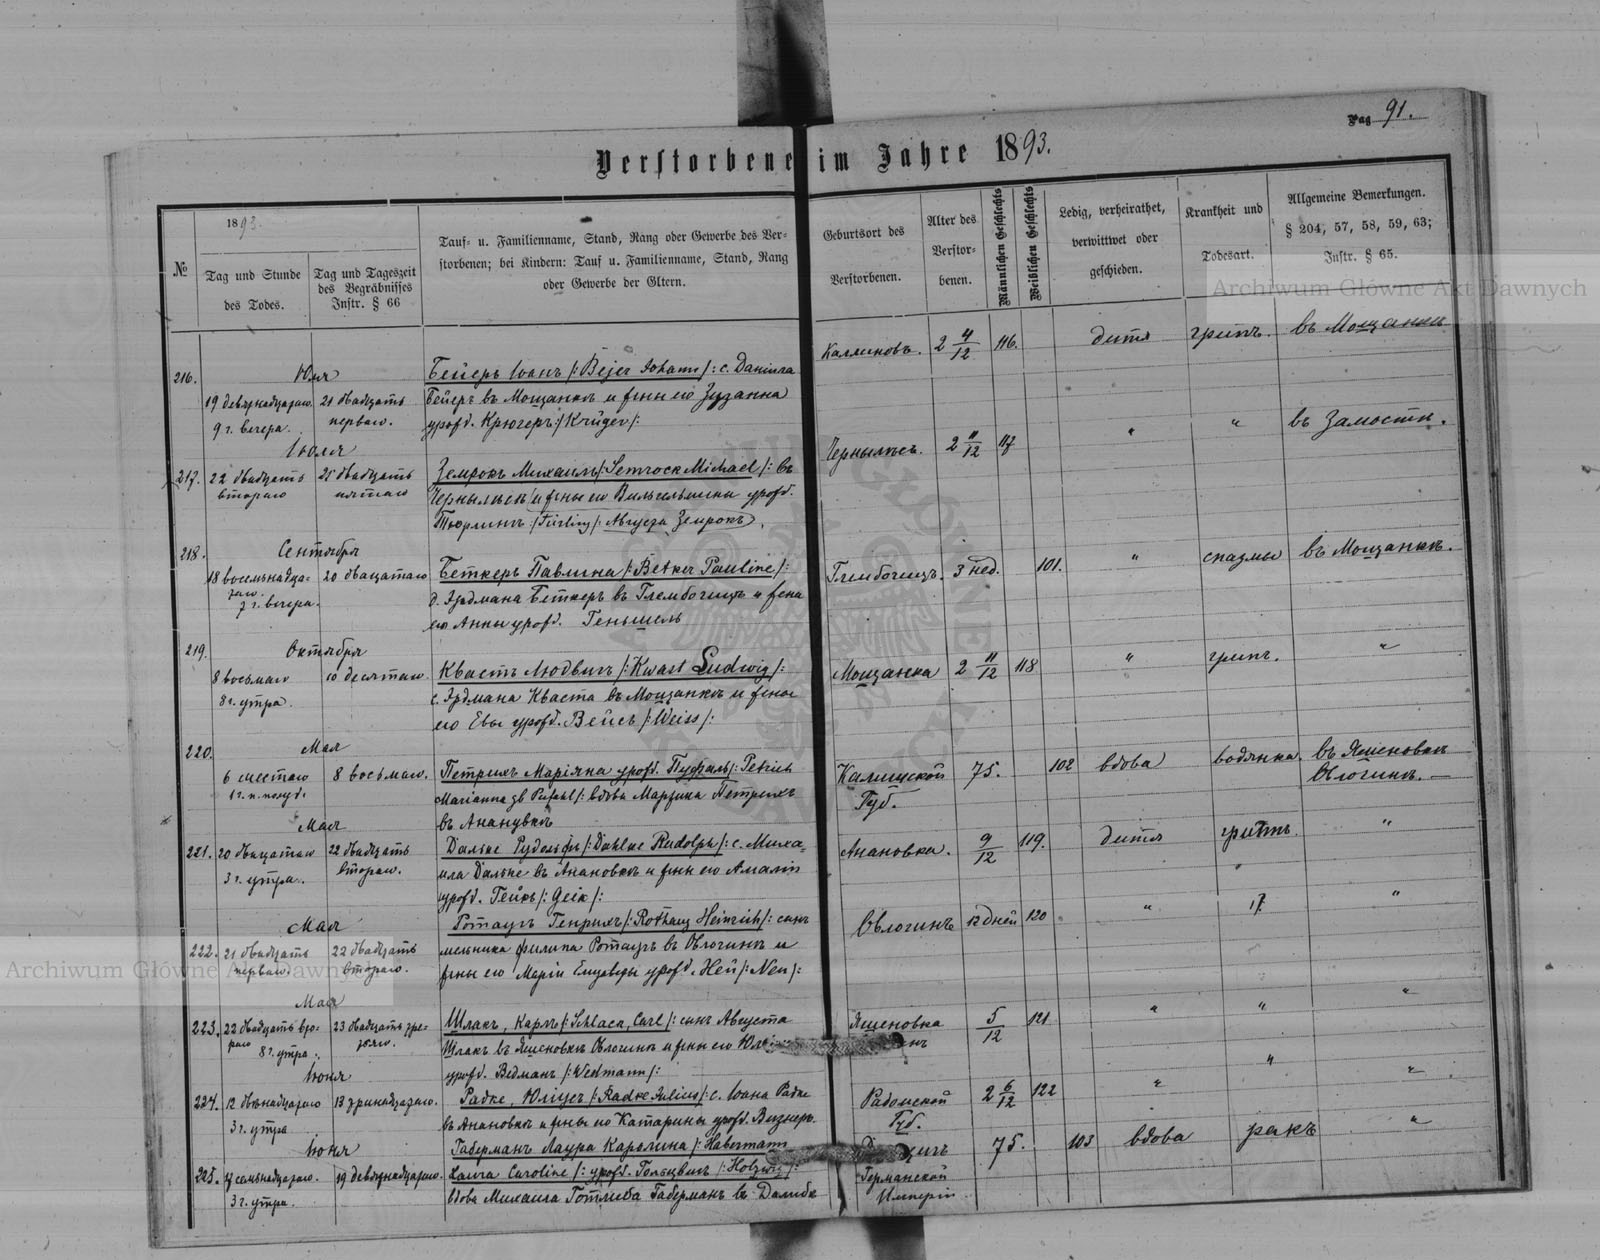 Pag 91.
Verstorbene im Jahre 1893.
№
1893.
Tag und Stunde
des Todes.
Tag und Tageszeit
des Begräbnisses
Instr. § 66
Tauf- u. Familienname, Stand, Rang oder Gewerbe des Ver-
storbenen; bei Kindern: Tauf u. Familienname, Stand, Rang
oder Gewerbe der Eltern.
Geburtsort des
Verstorbenen.
Alter des
Verstor-
benen.
Männlichen Geschlechts
Weiblichen Geschlechts
Ledig, verheirathet,
verwittwet oder
geschieden.
Krankheit und
Todesart.
Allgemeine Bemerkungen.
§ 204, 57, 58, 59, 63;
Instr. § 65.
Archiwum Główne Akt Dawnych
216.
19
9 г. вечера.
21 двадцать
первого.
Бейеръ Іоанъ /: Bejer Johann /: с. Даніила
Бейеръ въ Мощанкѣ и жены его Зузанна
урожд. Крюгеръ /: Krüger /:
2 4/12
116.
дитя
грипъ.
въ Мощанкѣ
Іюля
217.
22 двадцать
втораго
25 двадцать
пятаго
Земрокъ Михаилъ /: Semrock Michael /: въ
и жены его Вильгельмины урожд.
/: Türling /: Августа Земрокъ.
2 11/12
117
"
"
въ Замостьи.
218.
Сентября
18 восемьнадца-
таго
7 г. вечера.
20 двацатаго
Беткеръ Павлина /: Betker Pauline /:
д. Эрдмана Беткеръ въ Глембочицъ и жена
его Анны урожд. Геншель
Глембочицъ.
3 нед.
101.
"
спазмы
въ Мощанкѣ.
219.
Октября
8 восьмаго
8 г. утра.
10 десятаго.
Квастъ Людвигъ /: Kwast Ludwig /:
с. Эрдмана Кваста въ Мощанкѣ и жены
его Евы урожд. Вейсъ /: Weiss /:
Мощанка
2 11/12
118
"
грипъ.
"
220.
Мая
6 шестаго
8 восьмаго.
Петрихъ Маріяна урожд. Пуфаль /: Petrich
Marianna gb Pufahl /: вдова Мартина Петрихъ
въ
Калишской
Губ.
75.
102
вдова
водянка.
въ Яшеновкѣ
Овлочинъ.
Мая
221.
20 двацатаго
3 г. утра.
22 двадцать
втораго.
Дальке Рудольфъ /: Dahlke Rudolph /: с. Миха-
ила Дальке въ Анановкѣ и жены его Амаліи
урожд. Гейкъ /: Geik /:
Анановка.
9/12
119.
дитя
"
Мая
222.
21 двадцать
перваго.
22 двадцать
втораго.
Ротаугъ Генрихъ /: Rothaug Heinrich /: сынъ
мельника Филипа Ротаугъ въ Овлочинѣ и
жены его Маріи Елизаветы урожд. Ней /: Neu /:
Овлочинъ
12 дней
120
"
"
Archiwum Główne Akt Dawnych
Мая
223.
22 двадцать вто-
раго
8 г. утра.
23 двадцать тре-
тяго.
Шлакъ, Карлъ /: Schlack, Carl /: сынъ Августа
Шлакъ въ Яшеновкѣ Овлочинъ и жены его
урожд. Ведманъ /: Wedmann /:
Яшеновка
5/12
121
"
"
"
Іюня
224.
12 двѣнадцатаго
3 г. утра
13 тринадцатаго.
Радке, Юліусъ /: Radke Julius /: с. Іоана Радке
въ Анановкѣ и жены его Катарины урожд. Визнеръ.
Радомской
Губ.
2 6/12
122
"
"
"
Іюня
225.
17 семьнадцатаго.
3 г. утра.
19 девятнадцатаго.
Габерманъ Лаура Каролина /: Habermann
Laura Caroline /: урожд. Гольцвигъ /: Holzwig /:
вдова Михаила Готлиба Габерманъ въ
Германской
Имперіи
75.
103
вдова
ракъ
"